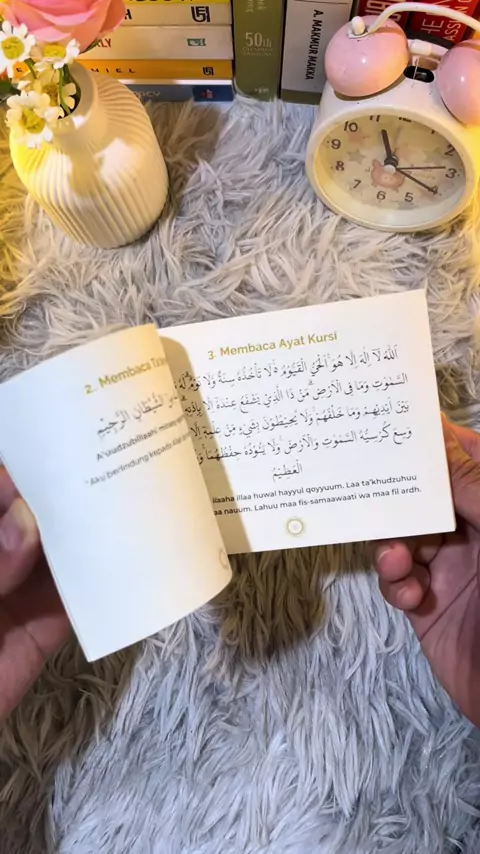 50th
A. MAKMUR MAKKA
10
9
8
7
6
5
4
2. Membaca
الشَّيْطَانِ الرَّجِيْمِ
A'uudzubillaahi
"Aku berlindung kepada Allah
3. Membaca Ayat Kursi
اَللّٰهُ لَآ اِلٰهَ اِلَّا هُوَ الْحَيُّ الْقَيُّوْمُ ەۚ لَا تَأْخُذُهٗ سِنَةٌ وَّلَا نَوْمٌۗ لَهٗ
السَّمٰوٰتِ وَمَا فِى الْاَرْضِۗ مَنْ ذَا الَّذِيْ يَشْفَعُ عِنْدَهٗٓ اِلَّا بِاِذْنِهٖۗ
بَيْنَ اَيْدِيْهِمْ وَمَا خَلْفَهُمْۚ وَلَا يُحِيْطُوْنَ بِشَيْءٍ مِّنْ عِلْمِهٖٓ اِلَّا
وَسِعَ كُرْسِيُّهُ السَّمٰوٰتِ وَالْاَرْضَۚ وَلَا يَـُٔوْدُهٗ حِفْظُهُمَاۚ
الْعَظِيْمُ
illaaha illaa huwal hayyul qoyyuum. Laa ta'khudzuhuu
nauum. Lahuu maa fis-samaawaati wa maa fil ardh.